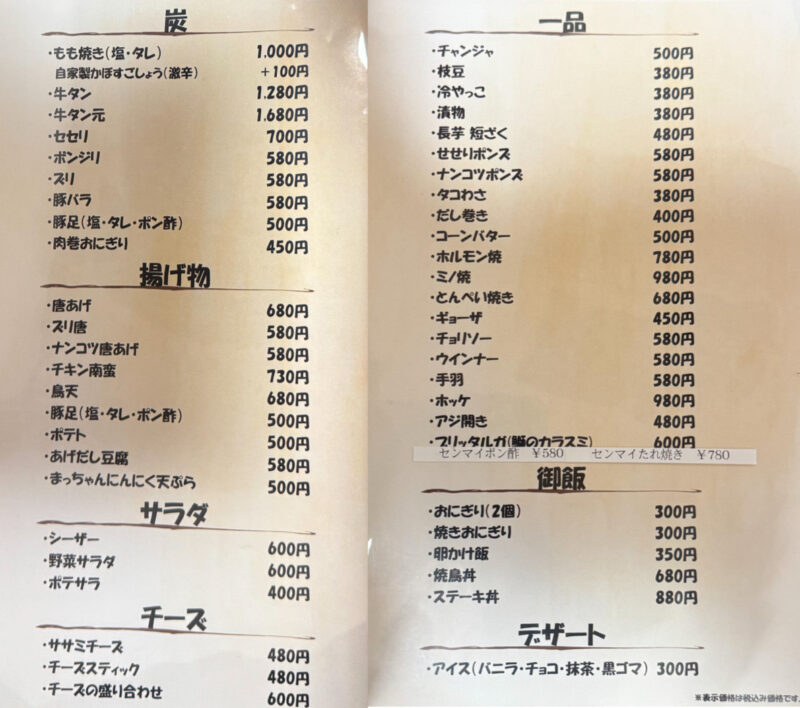 炭
・もも焼き(塩・タレ) 1.000円
自家製かぼすごしょう(激辛) +100円
・牛タン 1.280円
・牛タン元 1.680円
・セセリ 700円
・ボンジリ 580円
・ズリ 580円
・豚バラ 580円
・豚足(塩・タレ・ポン酢) 500円
・肉巻おにぎり 450円
揚げ物
・唐あげ 680円
・ズリ唐 580円
・ナンコツ唐あげ 580円
・チキン南蛮 730円
・鳥天 680円
・豚足(塩・タレ・ポン酢) 500円
・ポテト 500円
・あげだし豆腐 580円
・まっちゃんにんにく天ぷら 500円
サラダ
・シーザー 600円
・野菜サラダ 600円
・ポテサラ 400円
チーズ
・ササミチーズ 480円
・チーズスティック 480円
・チーズの盛り合わせ 600円
一品
・チャンジャ 500円
・枝豆 380円
・冷やっこ 380円
・漬物 380円
・長芋 短ざく 480円
・せせりポンズ 580円
・ナンコツポンズ 580円
・タコわさ 380円
・だし巻き 400円
・コーンバター 500円
・ホルモン焼 780円
・ミノ焼 980円
・とんぺい焼き 680円
・ギョーザ 450円
・チョリソー 580円
・ウインナー 580円
・手羽 580円
・ホッケ 980円
・アジ開き 480円
・ブリッタルガ(鰤のカラスミ) 600円
センマイポン酢 ¥580 センマイたれ焼き ¥780
御飯
・おにぎり(2個) 300円
・焼きおにぎり 300円
・卵かけ飯 350円
・焼鳥丼 680円
・ステーキ丼 880円
デザート
・アイス(バニラ・チョコ・抹茶・黒ゴマ) 300円
※表示価格は税込み価格です。